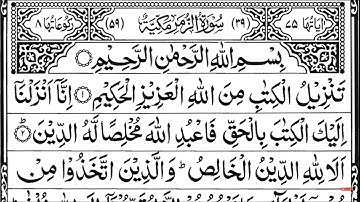 اٰیَاتُهَا ۷۵ (۳۹) سُوْرَةُ الزُّمَرِ مَكِّيَّةٌ (۵۹) رُكُوْعَاتُهَا ۸
بِسْمِ اللّٰهِ الرَّحْمٰنِ الرَّحِيْمِ
تَنْزِيْلُ الْكِتٰبِ مِنَ اللّٰهِ الْعَزِيْزِ الْحَكِيْمِ ۝۱ اِنَّاۤ اَنْزَلْنَاۤ
اِلَيْكَ الْكِتٰبَ بِالْحَقِّ فَاعْبُدِ اللّٰهَ مُخْلِصًا لَّهُ الدِّيْنَ ۝۲
اَلَا لِلّٰهِ الدِّيْنُ الْخَالِصُ ؕ وَالَّذِيْنَ اتَّخَذُوْا مِنْ